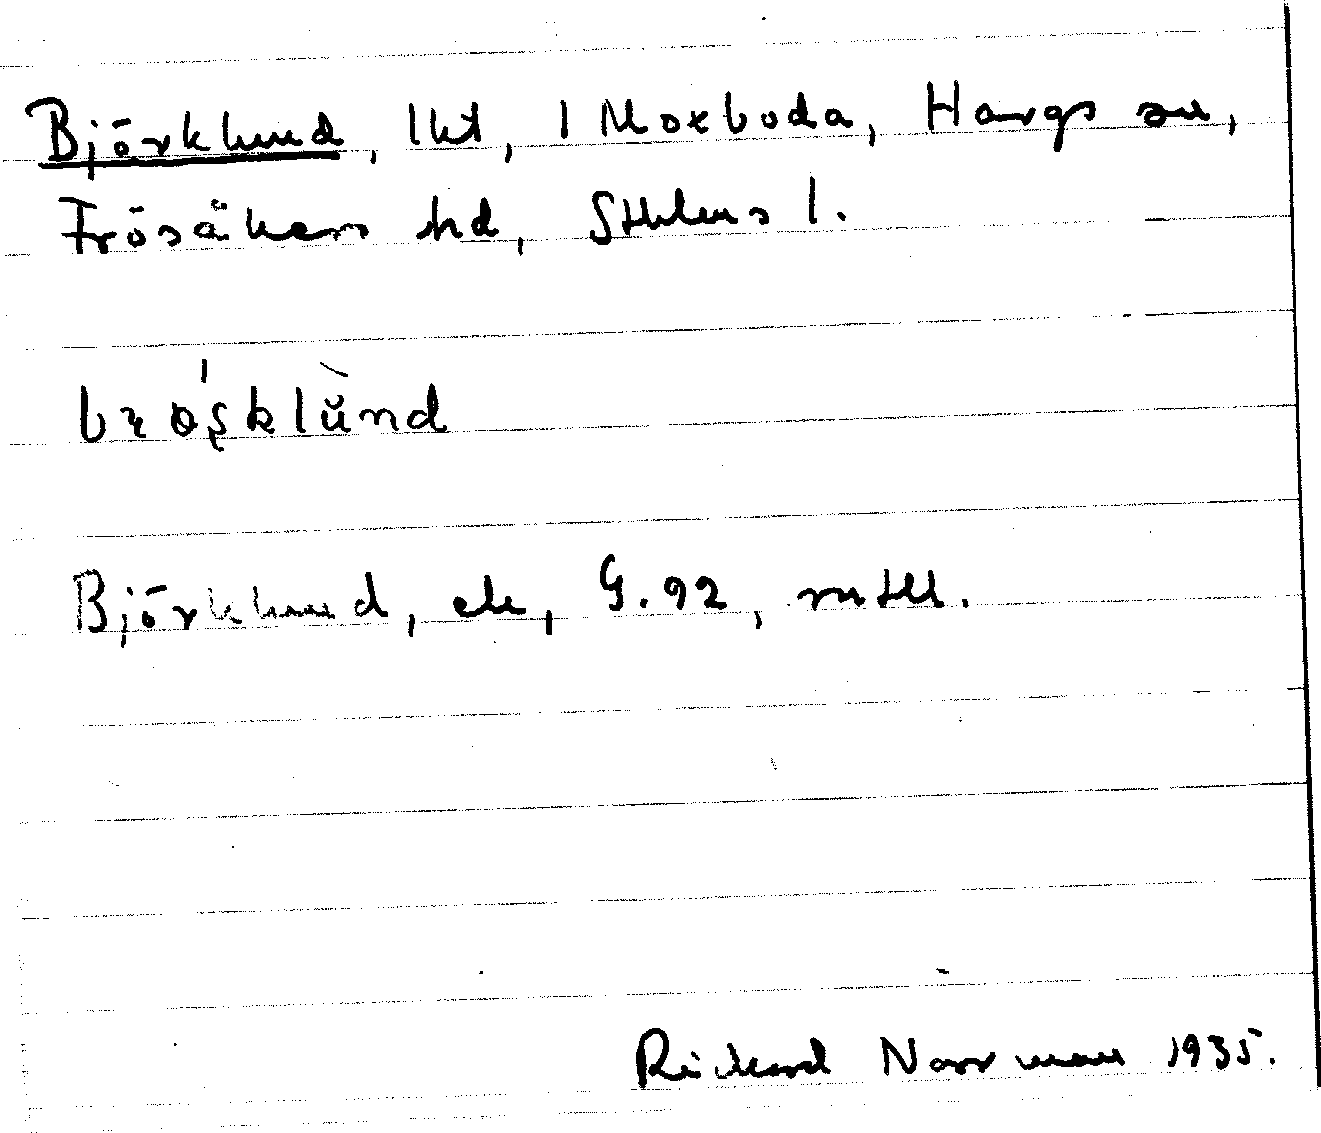 Björklund, lht, 1 Moxboda, Hargs sn,
Frösåkers hd, Sthlms l.
Björklund, ek, G. 92, mtll.
Rickard Norrman 1935.